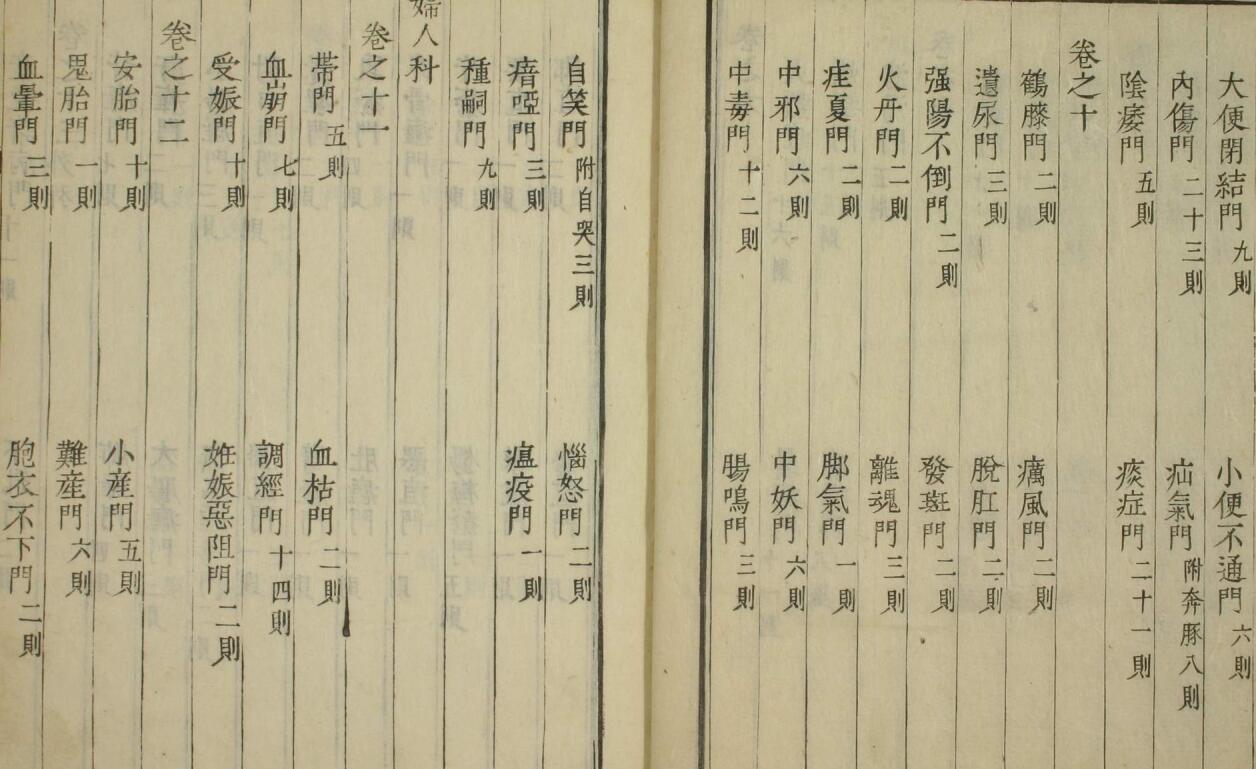 大便閉結門九則　小便不通門六則
內傷門二十三則　疝氣門附奔豚八則
陰痿門五則　痰症門二十一則
卷之十
鶴膝門二則　癘風門二則
遺尿門三則　脫肛門二則
强陽不倒門二則　發斑門二則
火丹門二則　離魂門三則
疰夏門二則　脚氣門一則
中邪門六則　中妖門六則
中毒門十二則　腸鳴門三則
自笑門附自哭三則　惱怒門二則
瘖啞門三則　瘟疫門一則
種嗣門九則
婦人科
卷之十一
帶門五則　血枯門二則
血崩門七則　調經門十四則
受娠門十則　妊娠惡阻門二則
卷之十二
安胎門十則　小產門五則
鬼胎門一則　難產門六則
血暈門三則　胞衣不下門二則